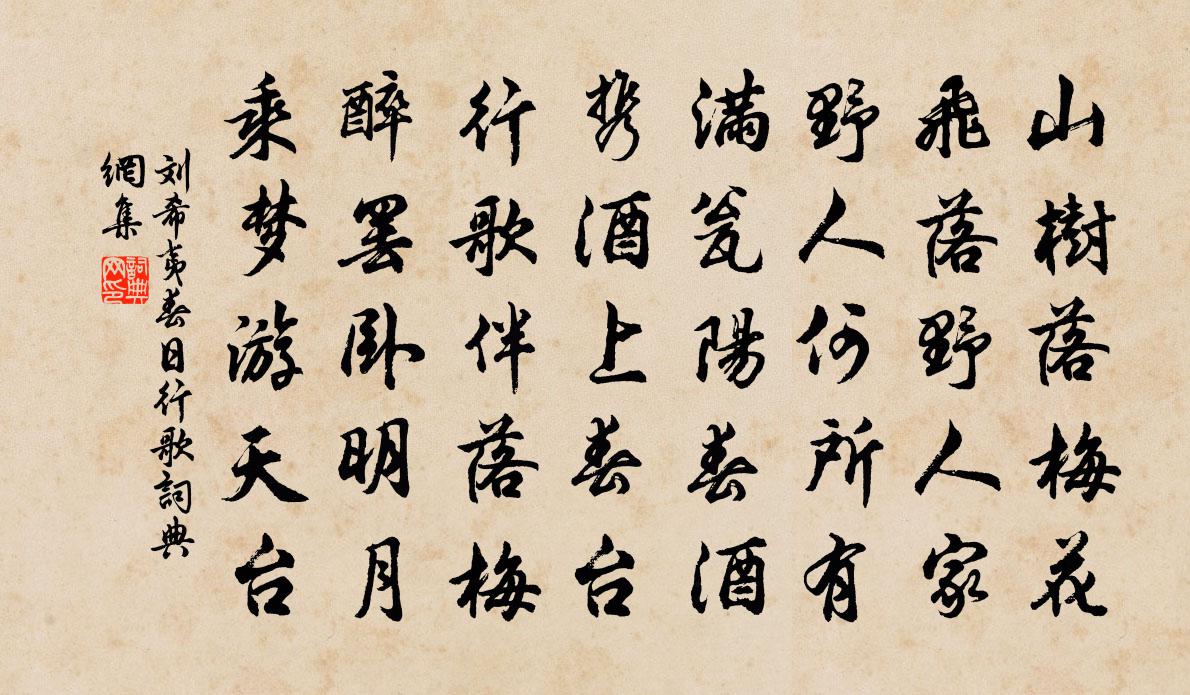 山樹落梅花
飛落野人家
野人何所有
滿瓮陽春酒
携酒上春台
行歌伴落梅
醉罢卧明月
乘梦游天台
刘希夷春日行歌詞典
網集
詞典网印